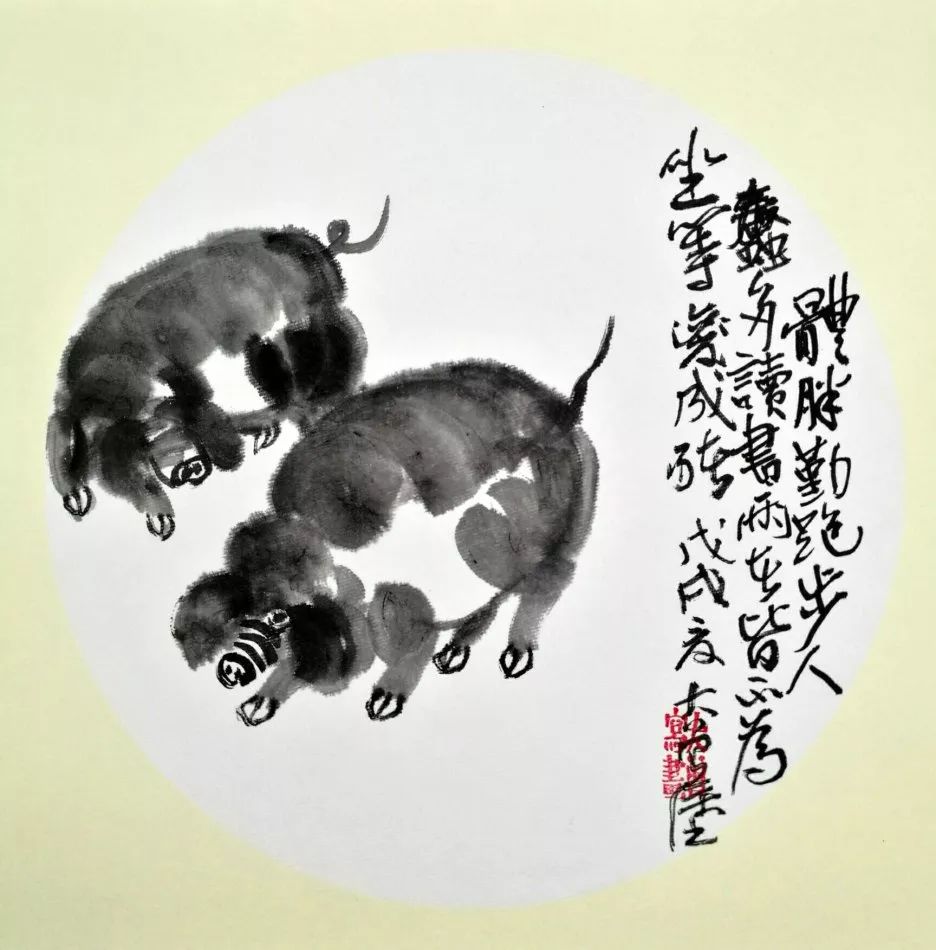 體胖勤跑步人
蠢多讀書兩者皆不為
坐等變成豬 戊戌夏 大